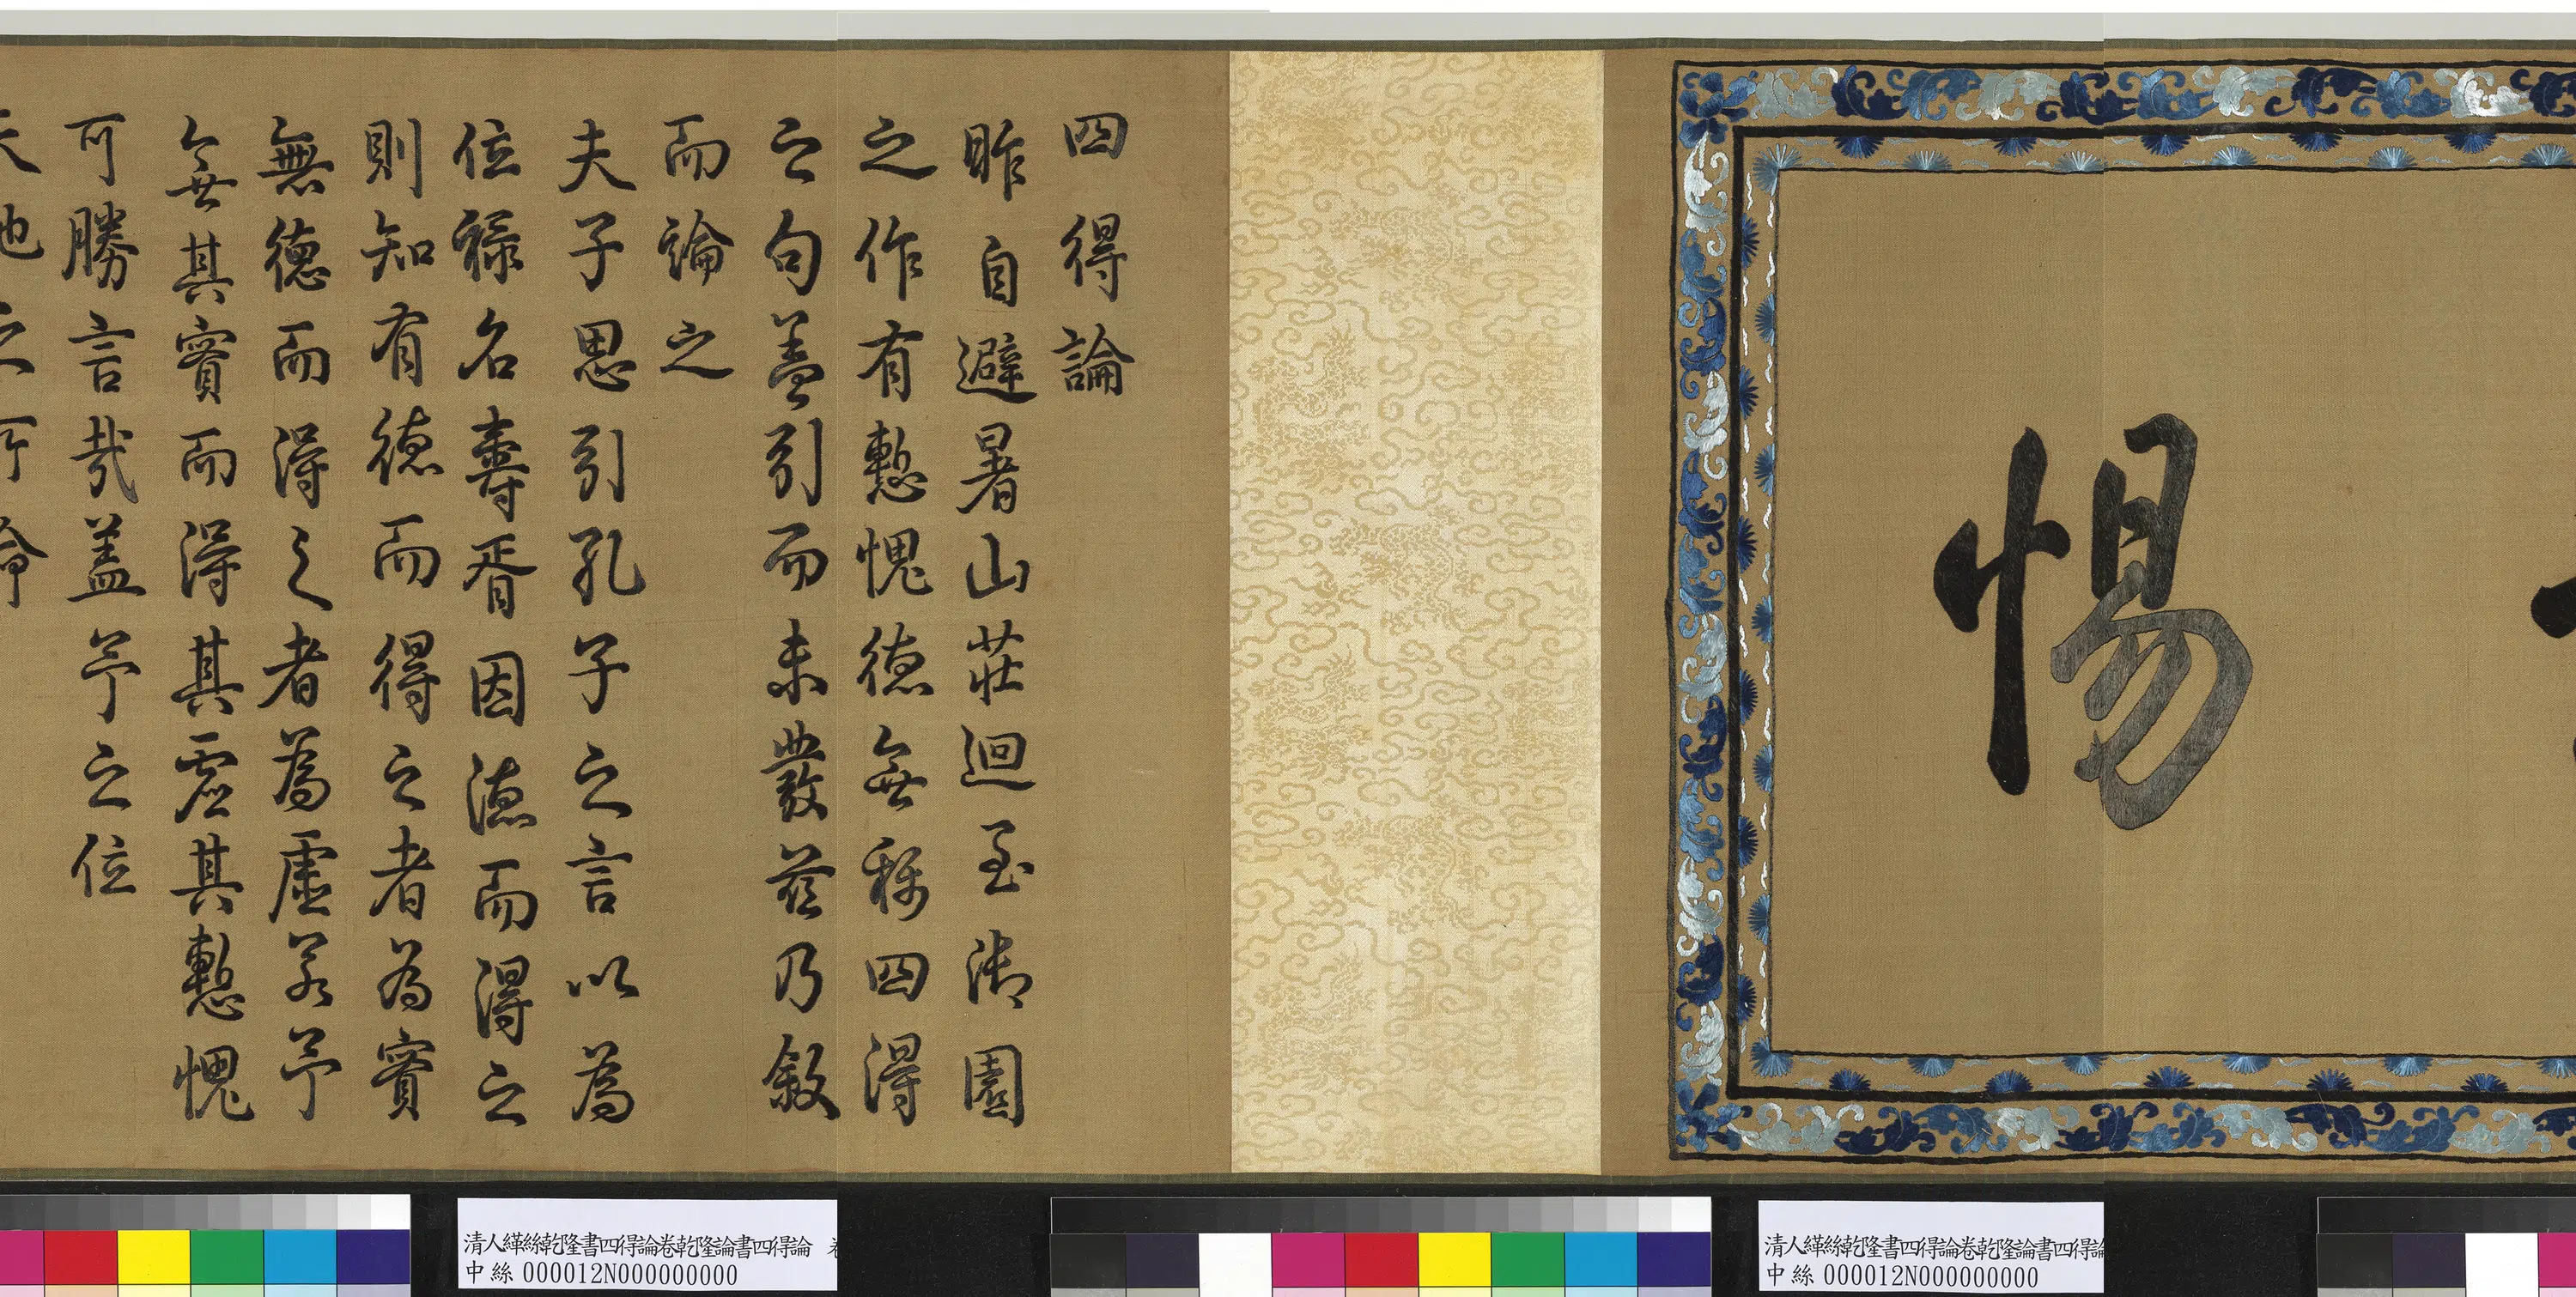 惕
四得論
昨自避暑山莊迴至御園
之作有慙愧德無稱四得
之句蓋引而未發茲乃敘
而論之
夫子思引孔子之言以為
位祿名壽胥因德而得之
則知有德而得之者為實
無德而得之者為虛若予
無其實而得其虛其慙愧
可勝言哉蓋予之位
清人緙絲乾隆書四得論卷乾隆論書四得論
中絲 000012N000000000
清人緙絲乾隆書四得論卷乾隆論書四得論
中絲 000012N000000000